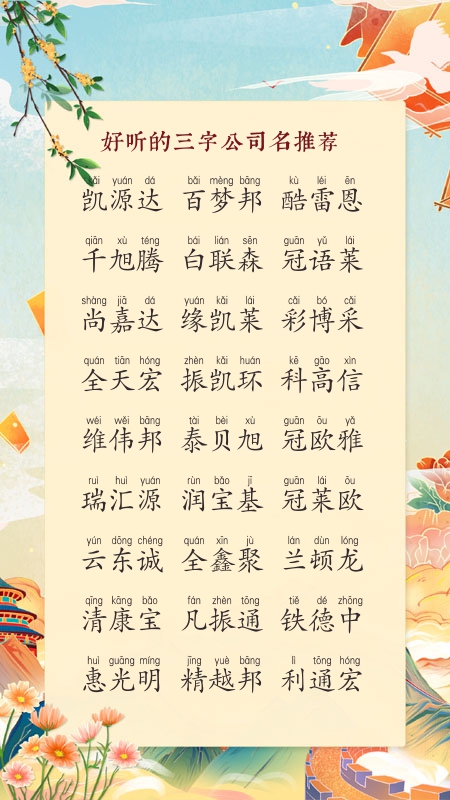 好听的三字公司名推荐
kǎi yuán dá bǎi mèng bāng kù léi ēn
凯源达 百梦邦 酷雷恩
qiān xù téng bái lián sēn guān yǔ lái
千旭腾 白联森 冠语莱
shàng jiā dá yuán kǎi lái cǎi bó cǎi
尚嘉达 缘凯莱 彩博采
quán tiān hóng zhèn kǎi huán kē gāo xìn
全天宏 振凯环 科高信
wéi wěi bāng tài bèi xù guān ōu yǎ
维伟邦 泰贝旭 冠欧雅
ruì huì yuán rùn bǎo jī guān lái ōu
瑞汇源 润宝基 冠莱欧
yún dōng chéng quán xīn jù lán dùn lóng
云东诚 全鑫聚 兰顿龙
qīng kāng bǎo fán zhèn tōng tiě dé zhōng
清康宝 凡振通 铁德中
huì guāng míng jīng yuè bāng lì tōng hóng
惠光明 精越邦 利通宏